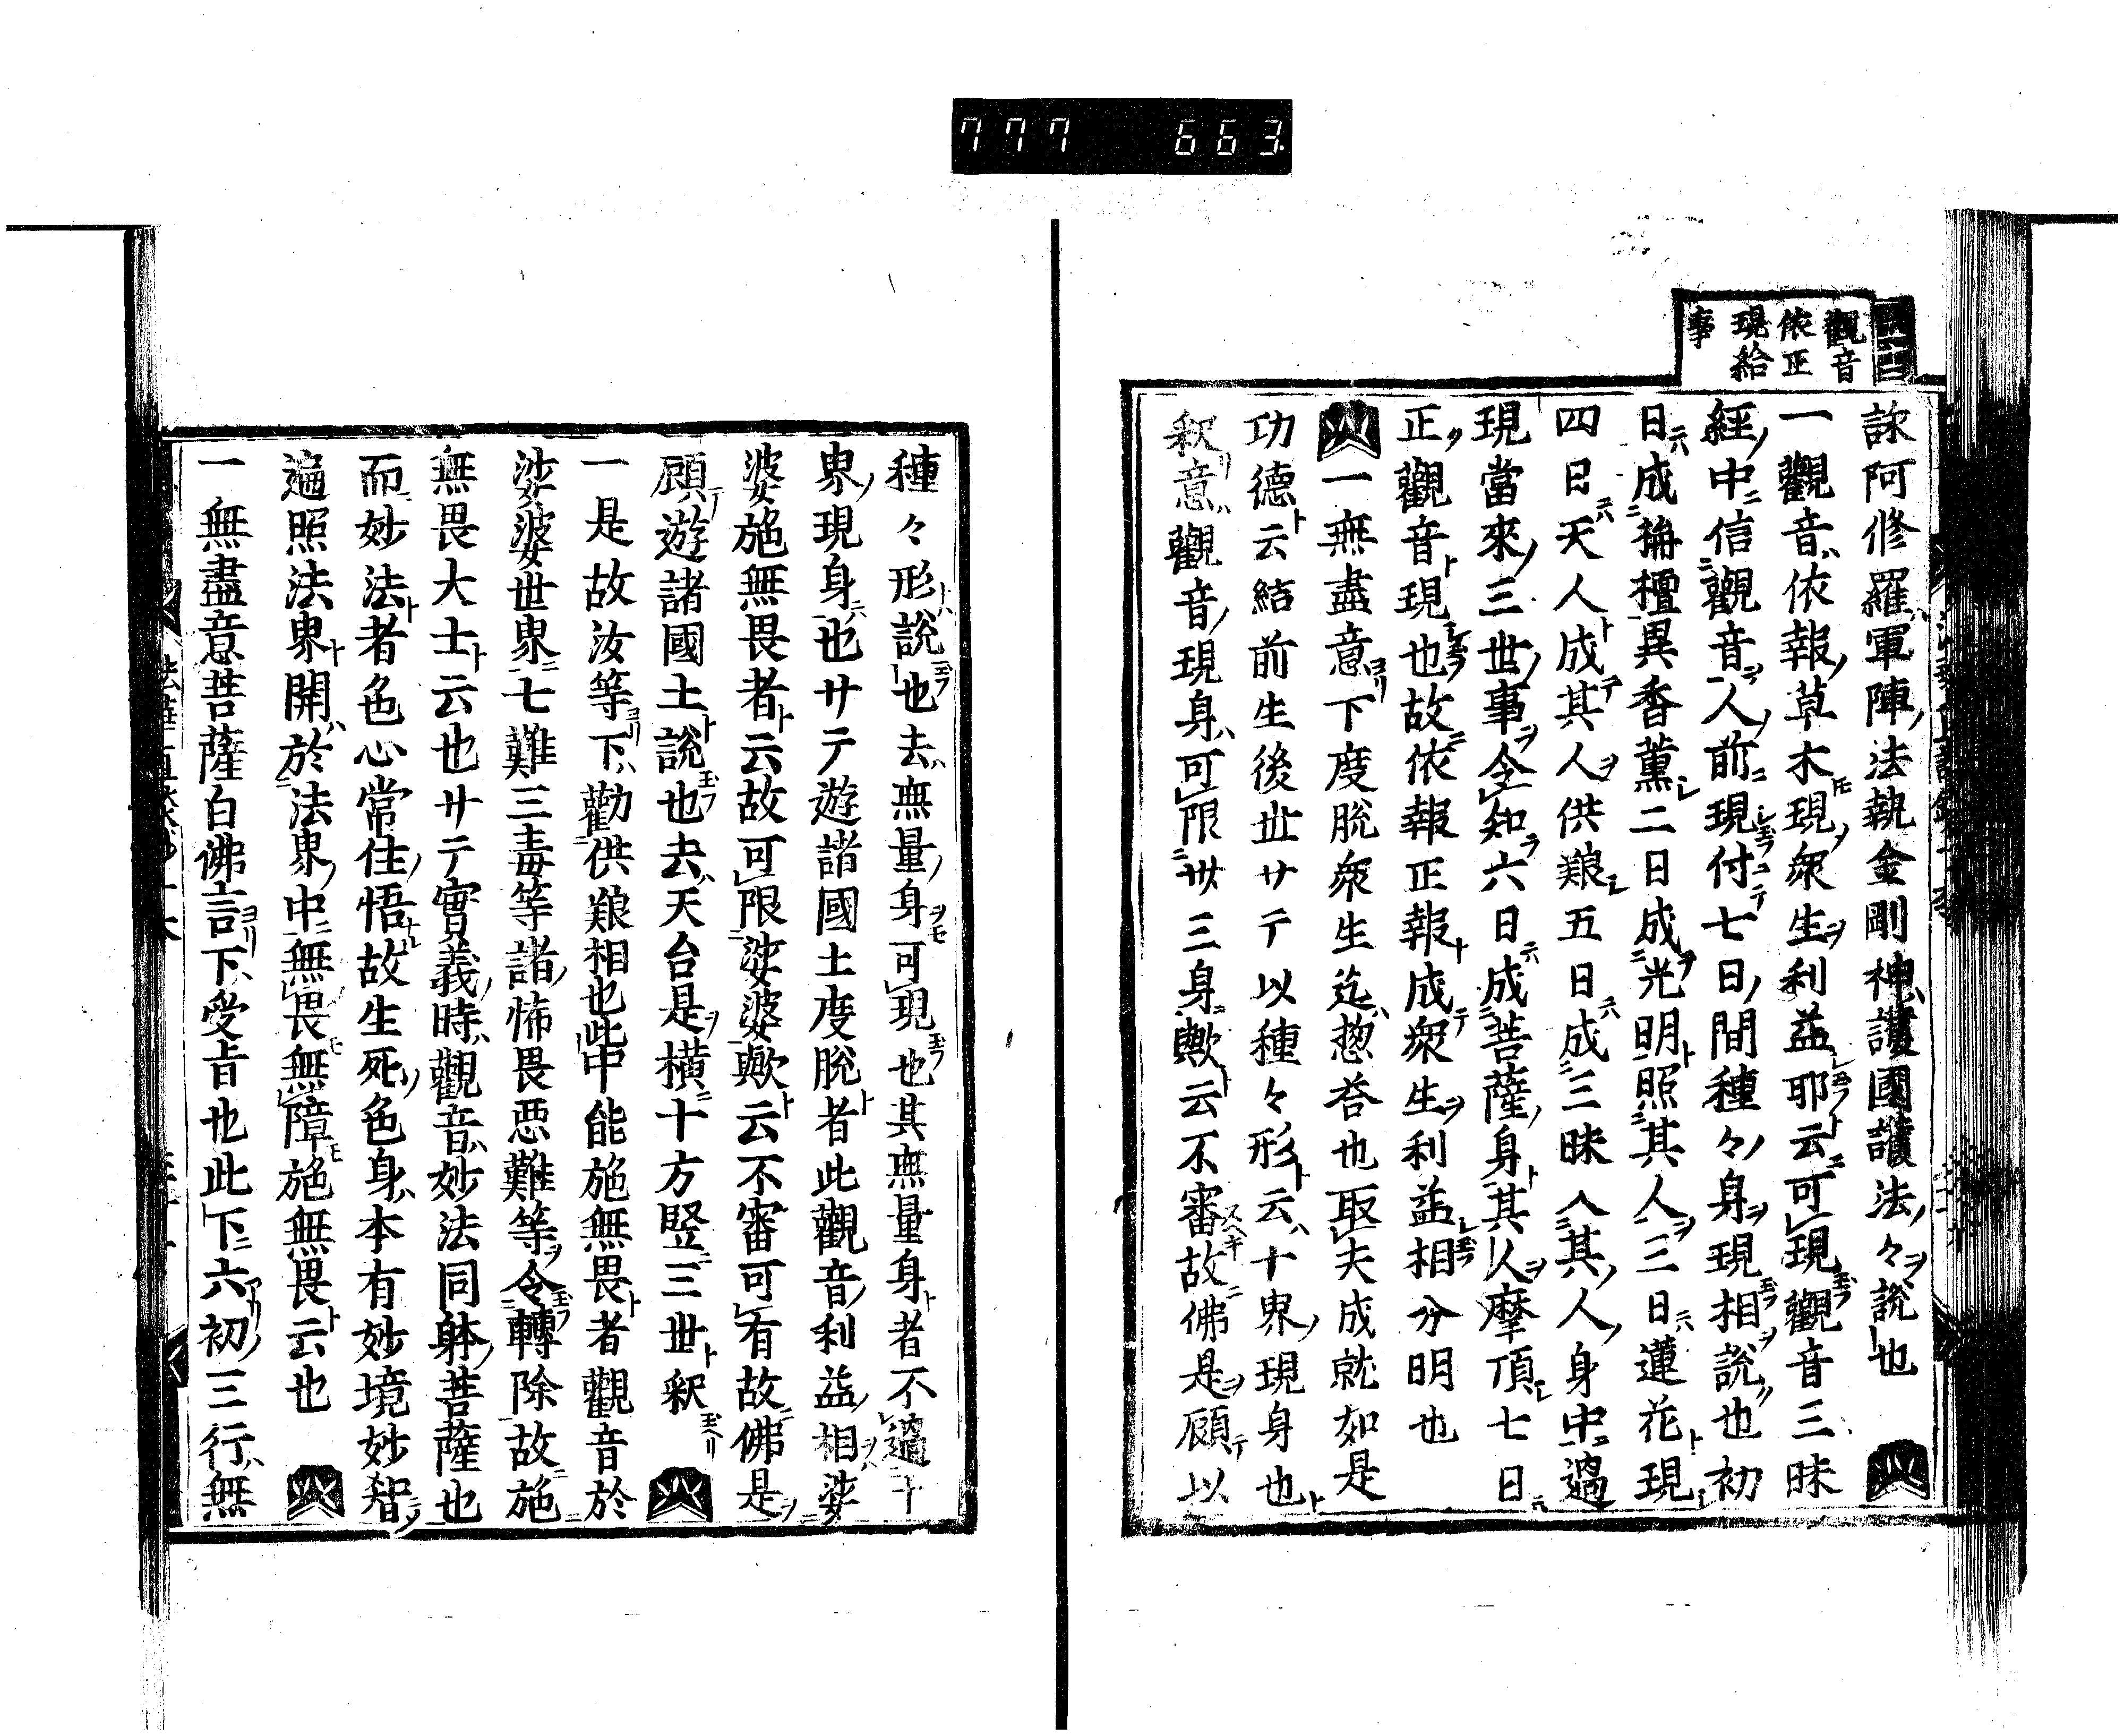 777 663
觀音
依正
現給
事
詠阿修羅軍陣法執金剛神護國讃法々說也
一觀音依報草木現衆生利益耶云可現觀音三昧
經中信觀音人前現付七日間種々身現相說也初
日成栴檀異香薫二日成光明照其人三日蓮花現
四日天人成其人供粮五日成三昧入其人身中過
現當來三世事令知六日成菩薩身其人摩頂七日
正觀音現也故依報正報成衆生利益相分明也
一無盡意下度脫衆生迄惣荅也取夫成就如是
功德云結前生後丗サテ以種々形云十界現身也
釈意觀音現身可限丗三身歟云不審故佛是顧以
種々形說也去無量身可現也其無量身者不過十
界現身也サテ遊諸國土度脫者此觀音利益相娑
婆施無畏者云故可限娑婆歟云不審可有故佛是
顧遊諸國土說也去天台是橫十方竪三世釈
一是故汝等下勸供粮相也此中能施無畏者觀音於
娑婆世界七難三毒等諸怖畏悪難等令轉除故施
無畏大士云也サテ實義時觀音妙法同躰菩薩也
而妙法者色心常住悟故生死色身本有妙境妙智
遍照法界開於法界中無畏無障施無畏云也
一無盡意菩薩白佛言下受旨也此下六初三行無